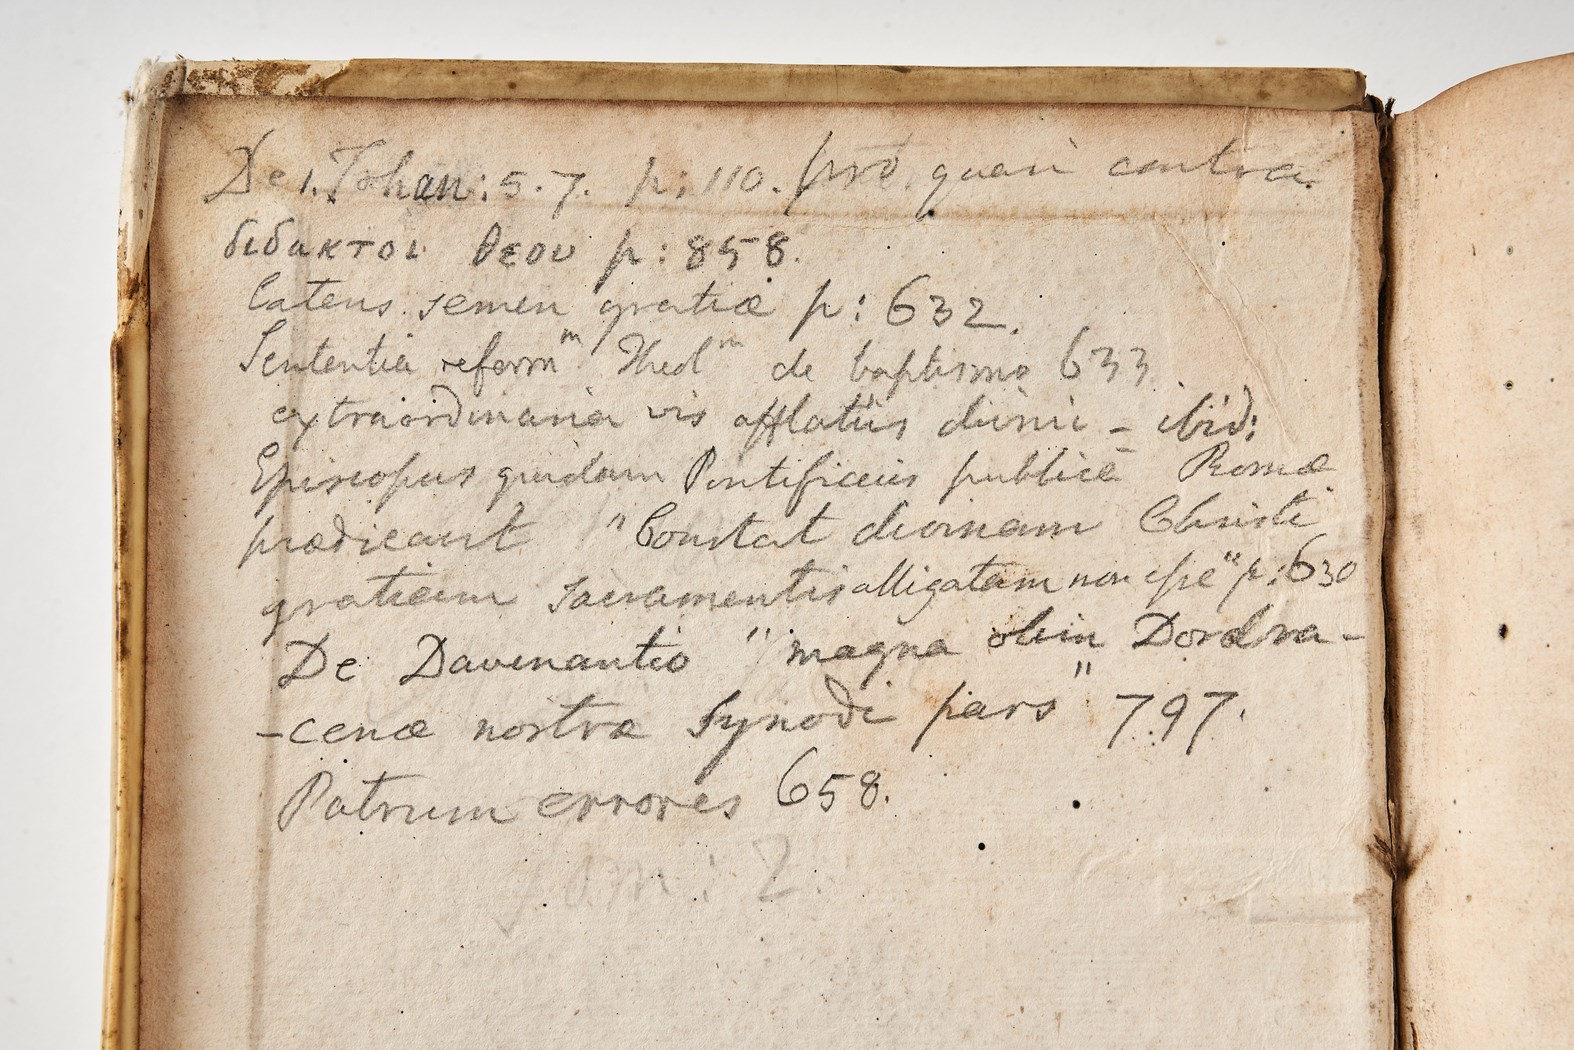 De 1. Johan: 5. 7. p: 110. pro quam contra.
διδακτοι θεου p: 858.
Latens semen gratiæ p: 632.
Sententia reform^m Theol^m de baptismo 633
extraordinaria vis afflatûs divini - ibid:
Episcopus quidam Pontificius publicè Romæ
prædicavit "Constat divinam Christi
gratiam sacramentis alligatam non esse" p: 630
De Davenantio "magna olim Dordra-
-cenæ nostræ Synodi pars" 797.
Patrum errores 658.
Tom: 2.